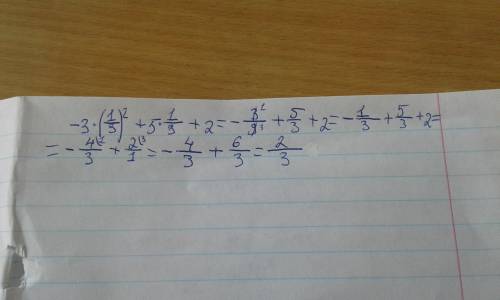 -3·(1/3)² + 5·1/3 + 2 = -3¹/9³ + 5/3 + 2 = -1/3 + 5/3 + 2 =
= -4/3 + 2⁽³/1 = -4/3 + 6/3 = 2/3